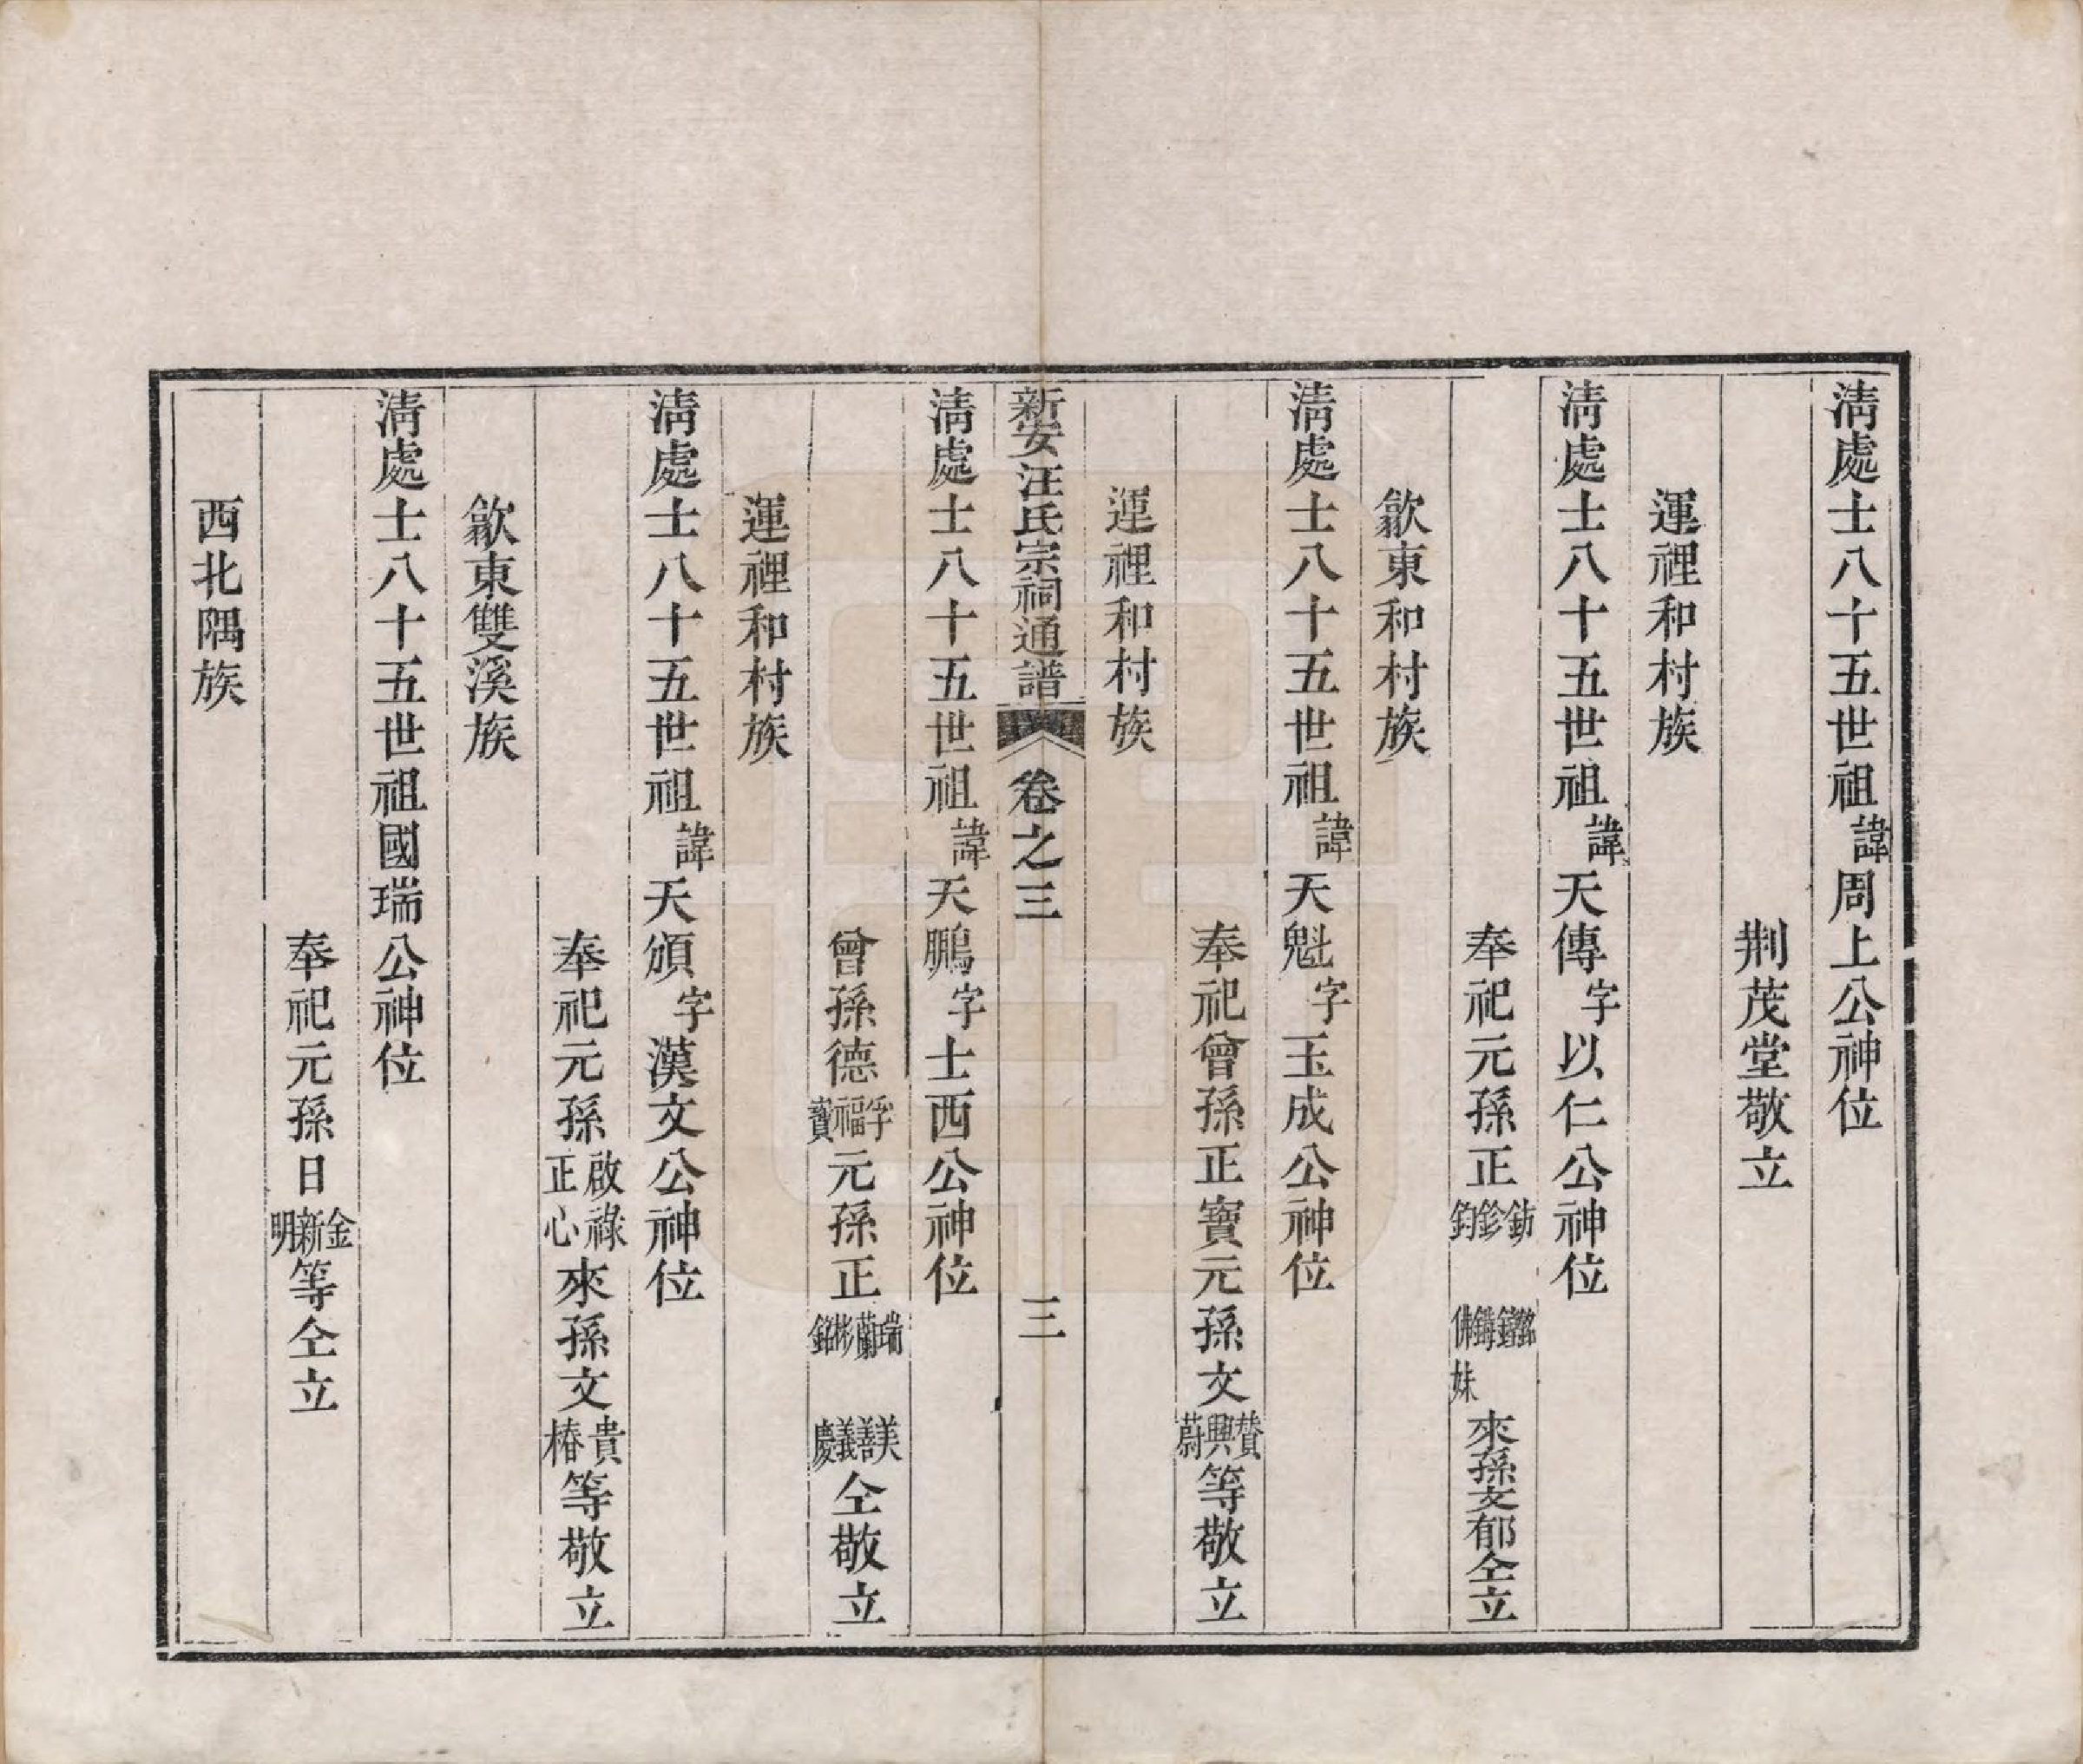 淸處士八十五世祖諱周上公神位
荆茂堂敬立
運裡和村族
淸處士八十五世祖諱天傳字以仁公神位
奉祀元孫正鈁鉁鈞佛妹來孫文郁仝立
歙東和村族
淸處士八十五世祖諱天魁字玉成公神位
奉祀曾孫正寶元孫文贊興蔚等敬立
運裡和村族
新安汪氏宗祠通譜 卷之三 三
淸處士八十五世祖諱天鵬字士西公神位
曾孫德孚福寶元孫正瑞蘭彬銘美善義慶仝敬立
運裡和村族
淸處士八十五世祖諱天頒字漢文公神位
奉祀元孫啟祿正心來孫文貴椿等敬立
歙東雙溪族
淸處士八十五世祖國瑞公神位
奉祀元孫日金新明等仝立
西北隅族